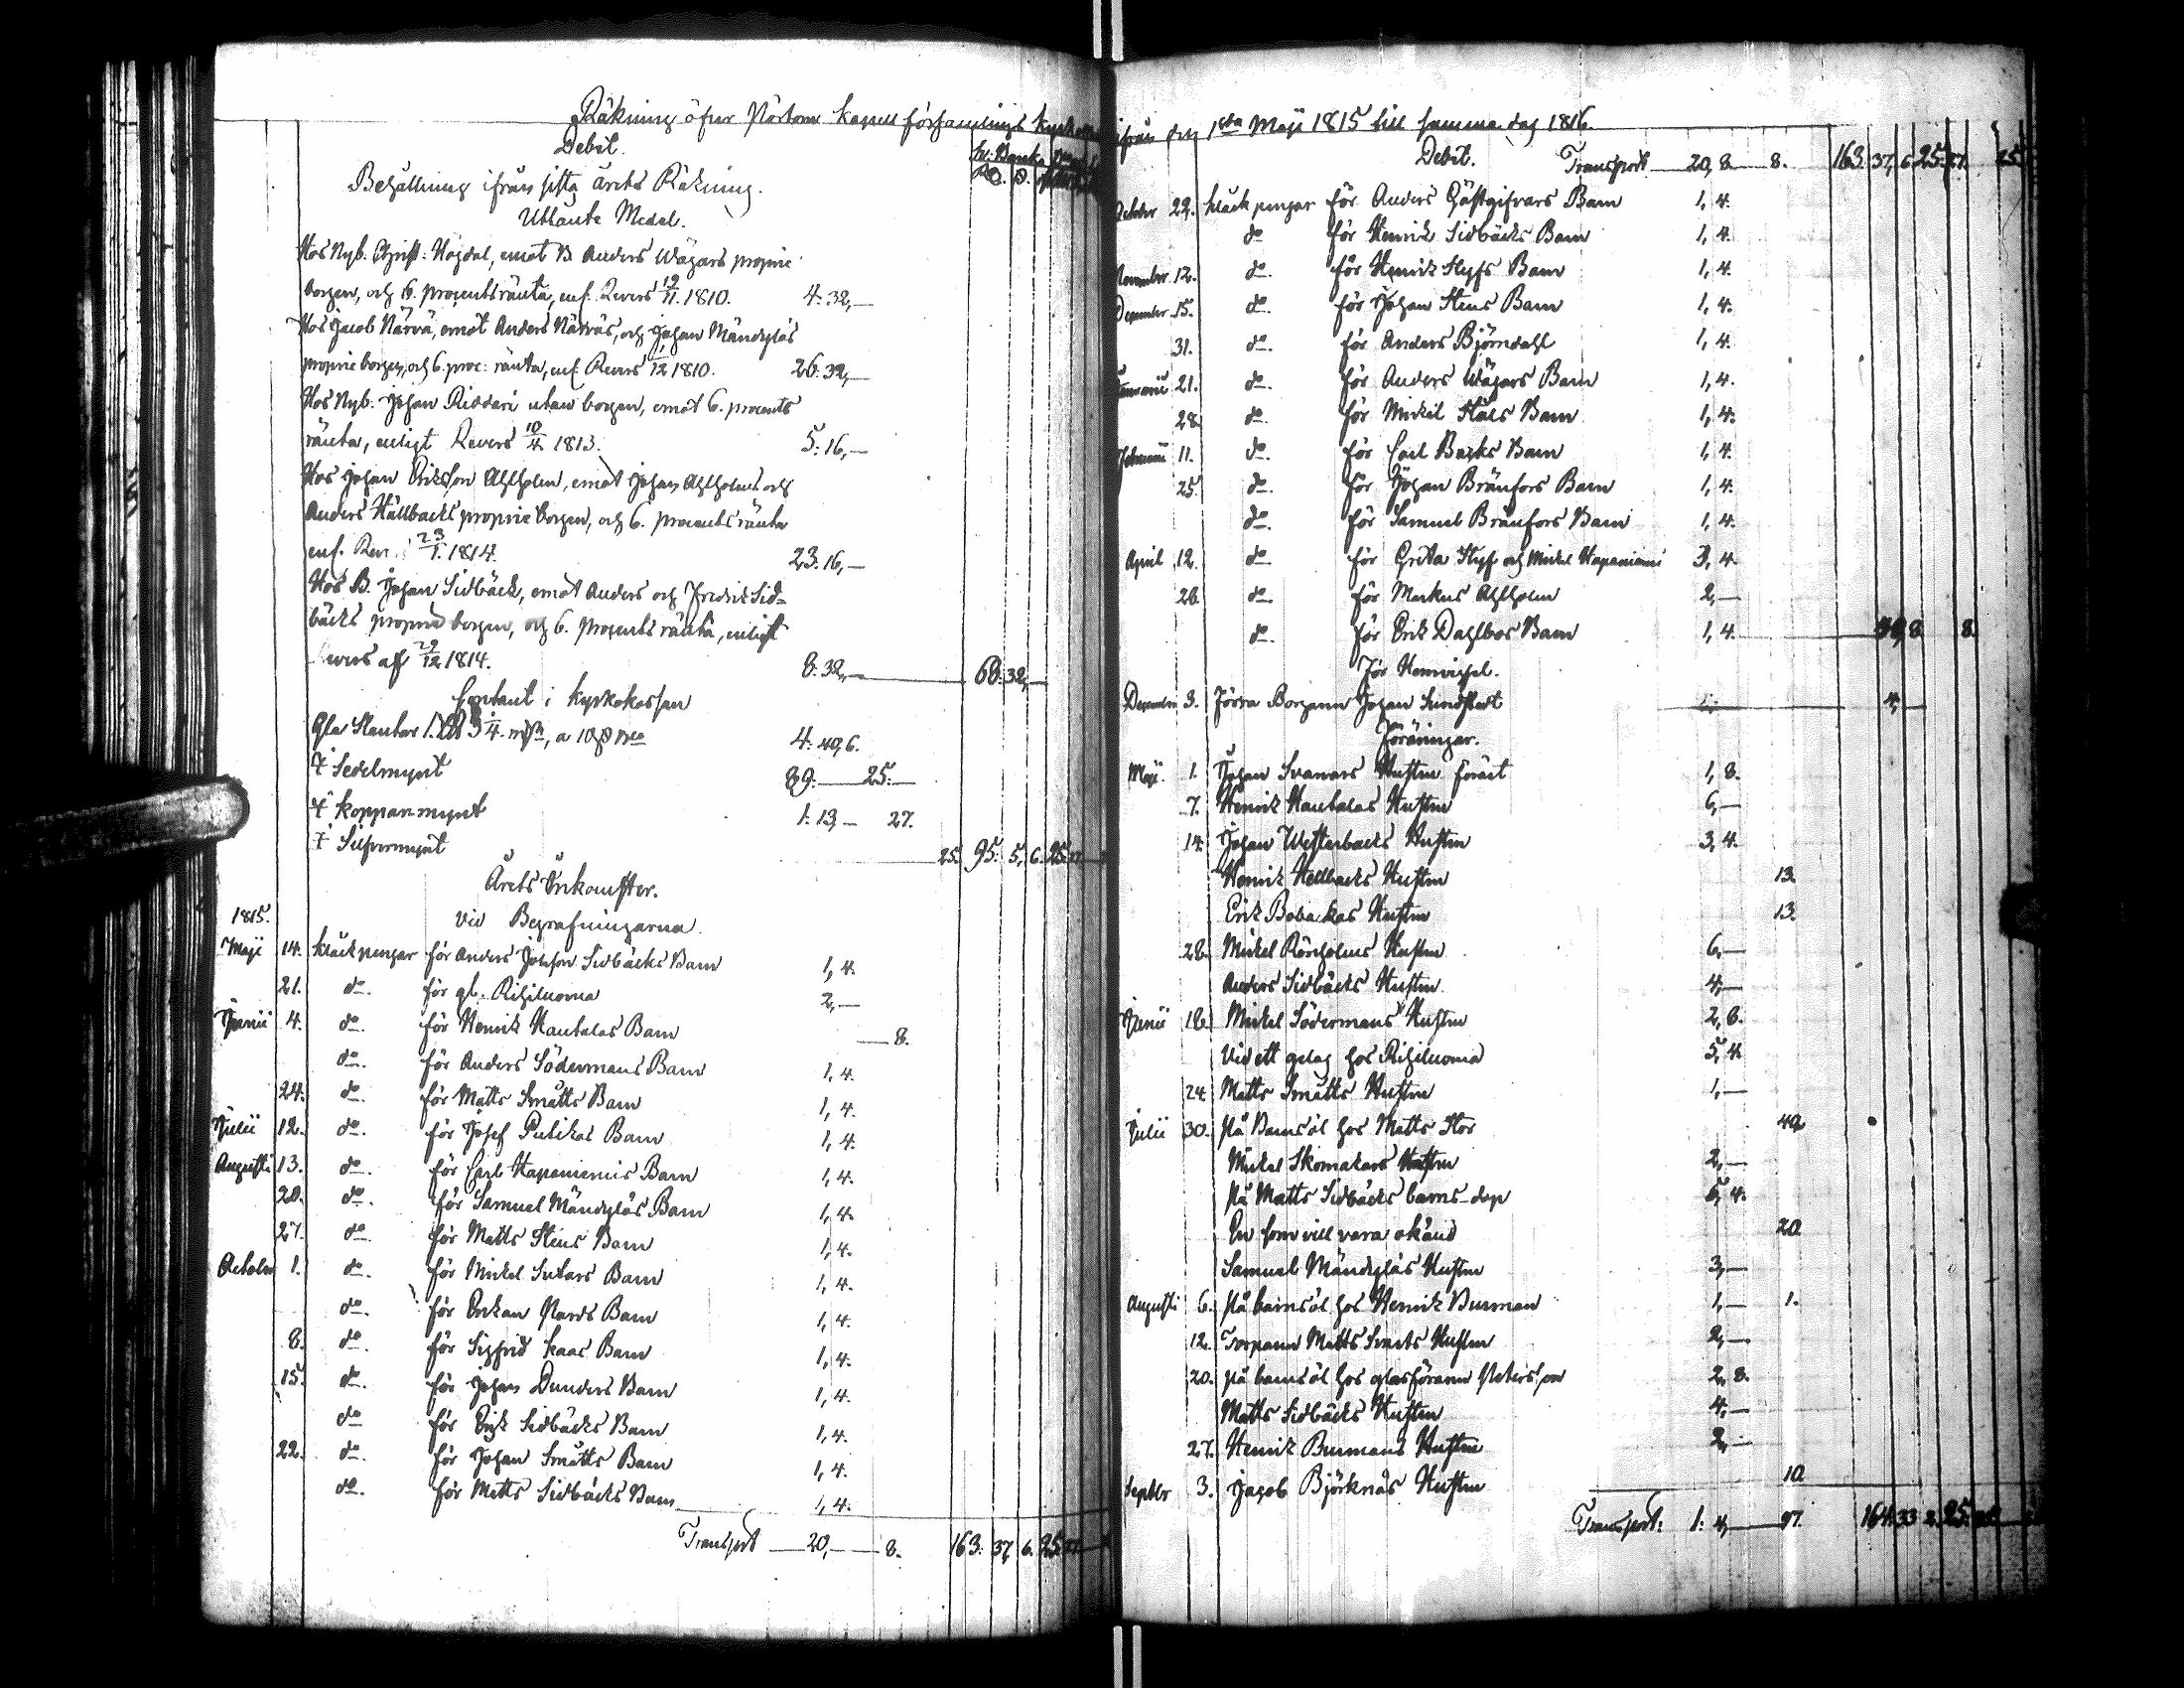 Räkning öfver Pörtom Kapell församlings Kyrko
Debit.
Sv: Banko
RD. S.
Behållning ifrån sista årets Räkning.
Utlånte Medel.
Hos Nyb. Christ: Högdal, emot B. Anders Wägars proprie
borgen, och 6. procents ränta, enl. Revers 19/11. 1810. 4. 32,—
Hos Jacob Närvä, emot Anders Närväs, och Johan Mändyläs
proprie borgen, och 6. proc: ränta, enl. Revers 1/12 1810. 26. 32,—
Hos Nyb. Johan Riddari utan borgen, emot 6. procents
ränta, enligt Revers 10/4 1813. 5. 16,—
Hos Johan Eriksson Ahlholm, emot Johan Ahlholms och
Anders Hällbacks proprie borgen, och 6. procents ränta
enl. Rev. 23/1. 1814. 23. 16,—
Hos B. Johan Sidbäck, emot Anders och Fredrik Sid-
bäcks proprie borgen, och 6. procents ränta, enligt
Revers af 29/12 1814. 8. 32,— 68. 32,—
Contant i Kyrkokassan
4. 40, 6.
i Sedelmynt 89.— 25.—
i Kopparmynt 1. 13,— 27.
i Silfvermynt 25. 95. 5, 6. 25. 27.
Årets Inkomster.
1815. Vid Begrafningarna.
Maji 14. Kläckpengar för Anders Johnson Sidbäcks Barn 1, 4.
21. do. för gl. Rihiluoma 2,—
Junii 4. do. för Henrik Hautalas Barn — 8.
do. för Anders Södermans Barn 1, 4.
24. do. för Matts Smatts Barn 1, 4.
Julii 12. do. för Josef Putikas Barn 1, 4.
Augusti 13. do. för Carl Hapaniemis Barn 1, 4.
20. do. för Samuel Mändyläs Barn 1, 4.
27. do. för Matts Stens Barn 1, 4.
October 1. do. för Mickel Sutars Barn 1, 4.
do. för Erkan Nards Barn 1, 4.
8. do. för Sigfrid Kaas Barn 1, 4.
15. do. för Johan Dunders Barn 1, 4.
do. för Erik Sidbäcks Barn 1, 4.
22. do. för Johan Smatts Barn 1, 4.
do. för Matts Sidbäcks Barn 1, 4.
Transport — 20,— 8. 163. 37, 6. 25. 27.
ifrån den 1sta Maji 1815 till samma dag 1816.
Debit. Transport 20, 8 — 8. 163. 37, 6. 25. 27. 25
October 22. Kläckpengar för Anders Gästgifvars Barn 1, 4.
do för Henrik Sidbäcks Barn 1, 4.
November 12. do. för Henrik Styfs Barn 1, 4.
December 15. do. för Johan Stens Barn 1, 4.
31. do. för Anders Björndahl 1, 4.
Januarii 21. do. för Anders Wägars Barn 1, 4.
28. do. för Mickel Ståls Barn 1, 4.
Februarii 11. do. för Carl Backs Barn 1, 4.
25. do. för Johan Bränfors Barn 1, 4.
do. för Samuel Bränfors Barn 1, 4.
April 12. do. för Greta Styf och Mickel Hapaniemi 3, 4.
26. do. för Markus Ahlholm 2,—
do. för Erik Dahlbos Barn 1, 4. 8. 8.
För Hemvigsel.
December 3. Förra Borgaren Johan Sundstedt 4,—
Föräringar.
Maji. 1. Johan Svanars Hustru förärt 1, 8.
7. Henrik Hautalas Hustru 6,—
14. Johan Westerbacks Hustru 3, 4.
Henrik Hellbacks Hustru 13.
Erik Bobackas Hustru 13.
28. Mickel Rönholms Hustru 6,—
Anders Sidbäcks Hustru 4,—
Junii 18. Mickel Södermans Hustru 2, 8.
Vid ett gelag hos Rihiluoma 5, 4.
24. Matts Smatts Hustru 1,—
Julii 30. På Barnsöl hos Matts Stor 40,
Mickel Skomakars Hustru 2,—
På Matts Sidbäcks barns-dop 5, 4.
En som vill vara okänd 20.
Samuel Mändyläs Hustru 3,—
Augusti 6. På barnsöl hos Henrik Burman 1,— 1.
12. Torparen Matts Svarts Hustru 2,—
20. på barnsöl hos glasföraren Petersson 2, 8.
Matts Sidbäcks Hustru 4,—
27. Henrik Burmans Hustru 2,—
Septbr 3. Jacob Björknäs Hustru 10.
Transport: 1. 4,— 97. 164. 33 2. 25.